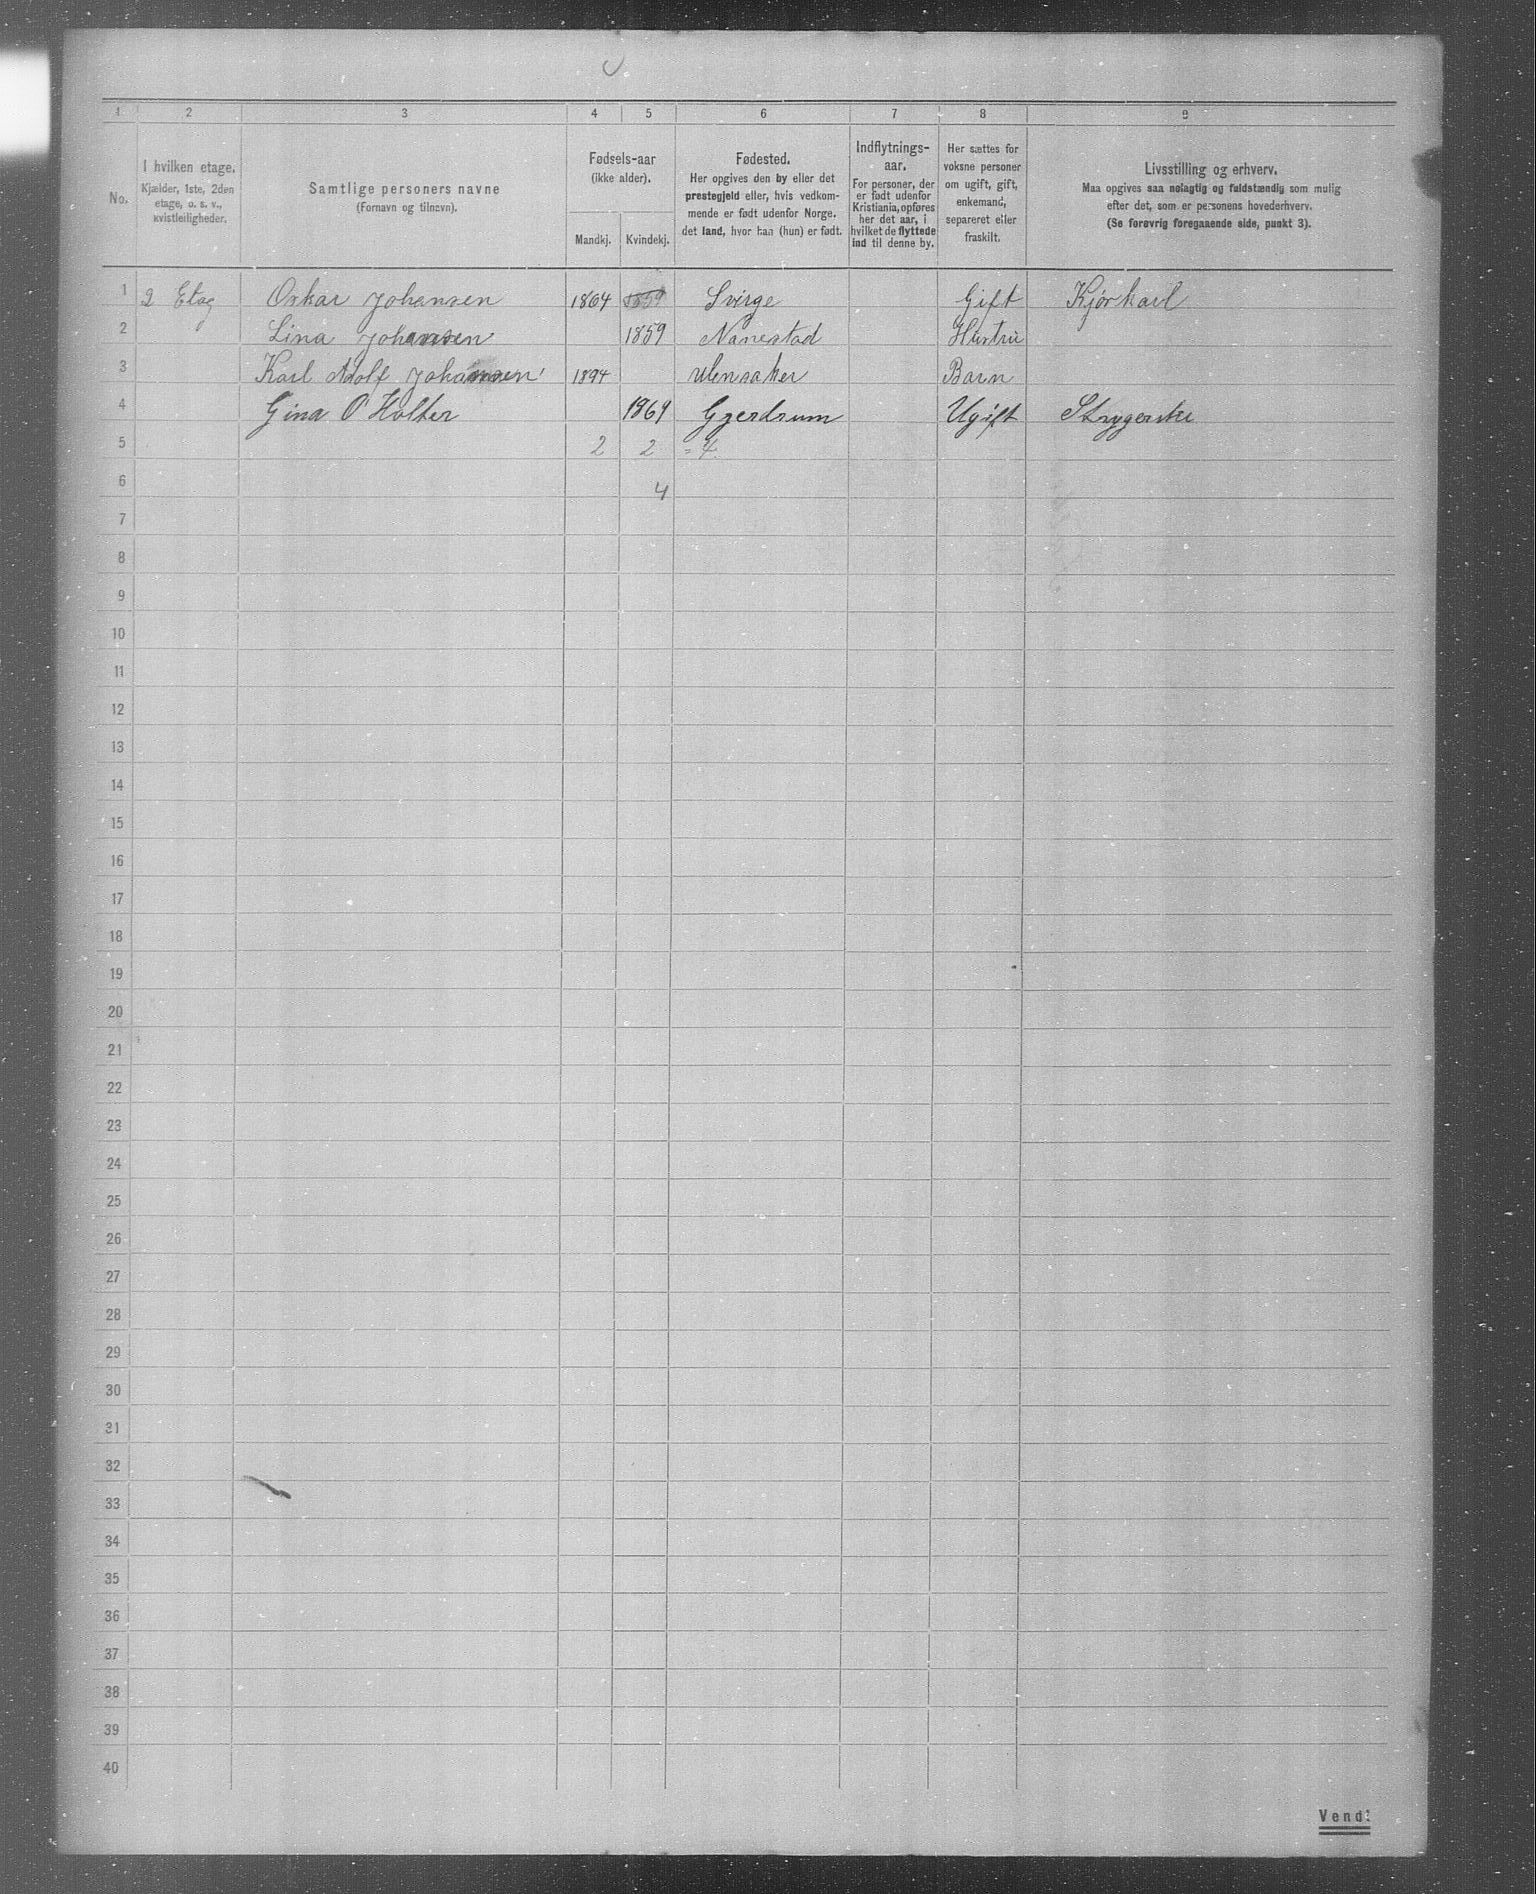 1 2 3 4 5 6 7 8 9
No.
I hvilken etage.
Kjælder, 1ste, 2den
etage, o. s. v.,
kvistleiligheder.
Samtlige personers navne
(Fornavn og tilnavn).
Fødsels-aar
(ikke alder).
Mandkj. Kvindekj.
Fødested.
Her opgives den by eller det
prestegjeld eller, hvis vedkom-
mende er født udenfor Norge.
det land, hvor han (hun) er født.
Indflytnings-
aar.
For personer, der
er født udenfor
Kristiania, opføres
her det aar, i
hvilket de flyttede
ind til denne by.
Her sættes for
voksne personer
om ugift, gift,
enkemand,
separeret eller
fraskilt.
Livsstilling og erhverv.
Maa opgives saa nøiagtig og fuldstændig som mulig
efter det, som er personens hovederhverv.
(Se forøvrig foregaaende side, punkt 3).
1 2 Etag Oskar Johansen 1864 1859 Svirge Gift Kjørkarl
2 Lina Johansen 1859 Nanestad Hustru
3 Karl Adolf Johansen 1894 Ulensaker Barn
4 Gina O Holter 1869 Gjerdrum Ugift Strygerske
5 2 2 = 4.
6 4
7
8
9
10
11
12
13
14
15
16
17
18
19
20
21
22
23
24
25
26
27
28
29
30
31
32
33
34
35
36
37
38
39
40
Vend!